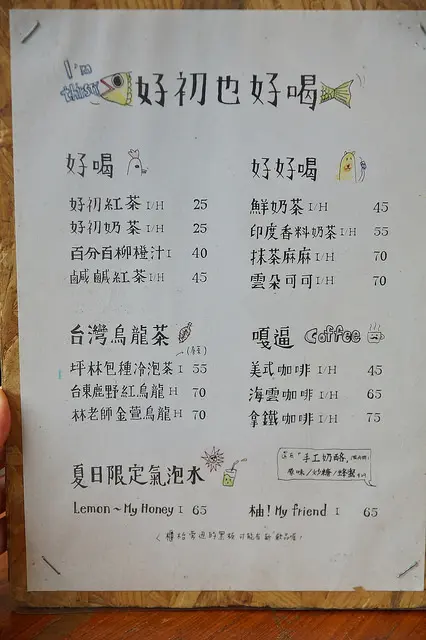 I'm thirsty 好初也好喝
好喝
好初紅茶 I/H 25
好初奶茶 I/H 25
百分百柳橙汁 I 40
鹹鹹紅茶 I/H 45
好好喝
鮮奶茶 I/H 45
印度香料奶茶 I/H 55
抹茶麻麻 I/H 70
雲朵可可 I/H 70
台灣烏龍茶
坪林包種冷泡茶 I 55
台東鹿野紅烏龍 H 70
林老師金萱烏龍 H 70
嘎逼 Coffee
美式咖啡 I/H 45
海雲咖啡 I/H 65
拿鐵咖啡 I/H 75
還有"手工奶酪"
原味/炒糖/蜂蜜
夏日限定氣泡水
Lemon~My Honey I 65
柚! My friend I 65